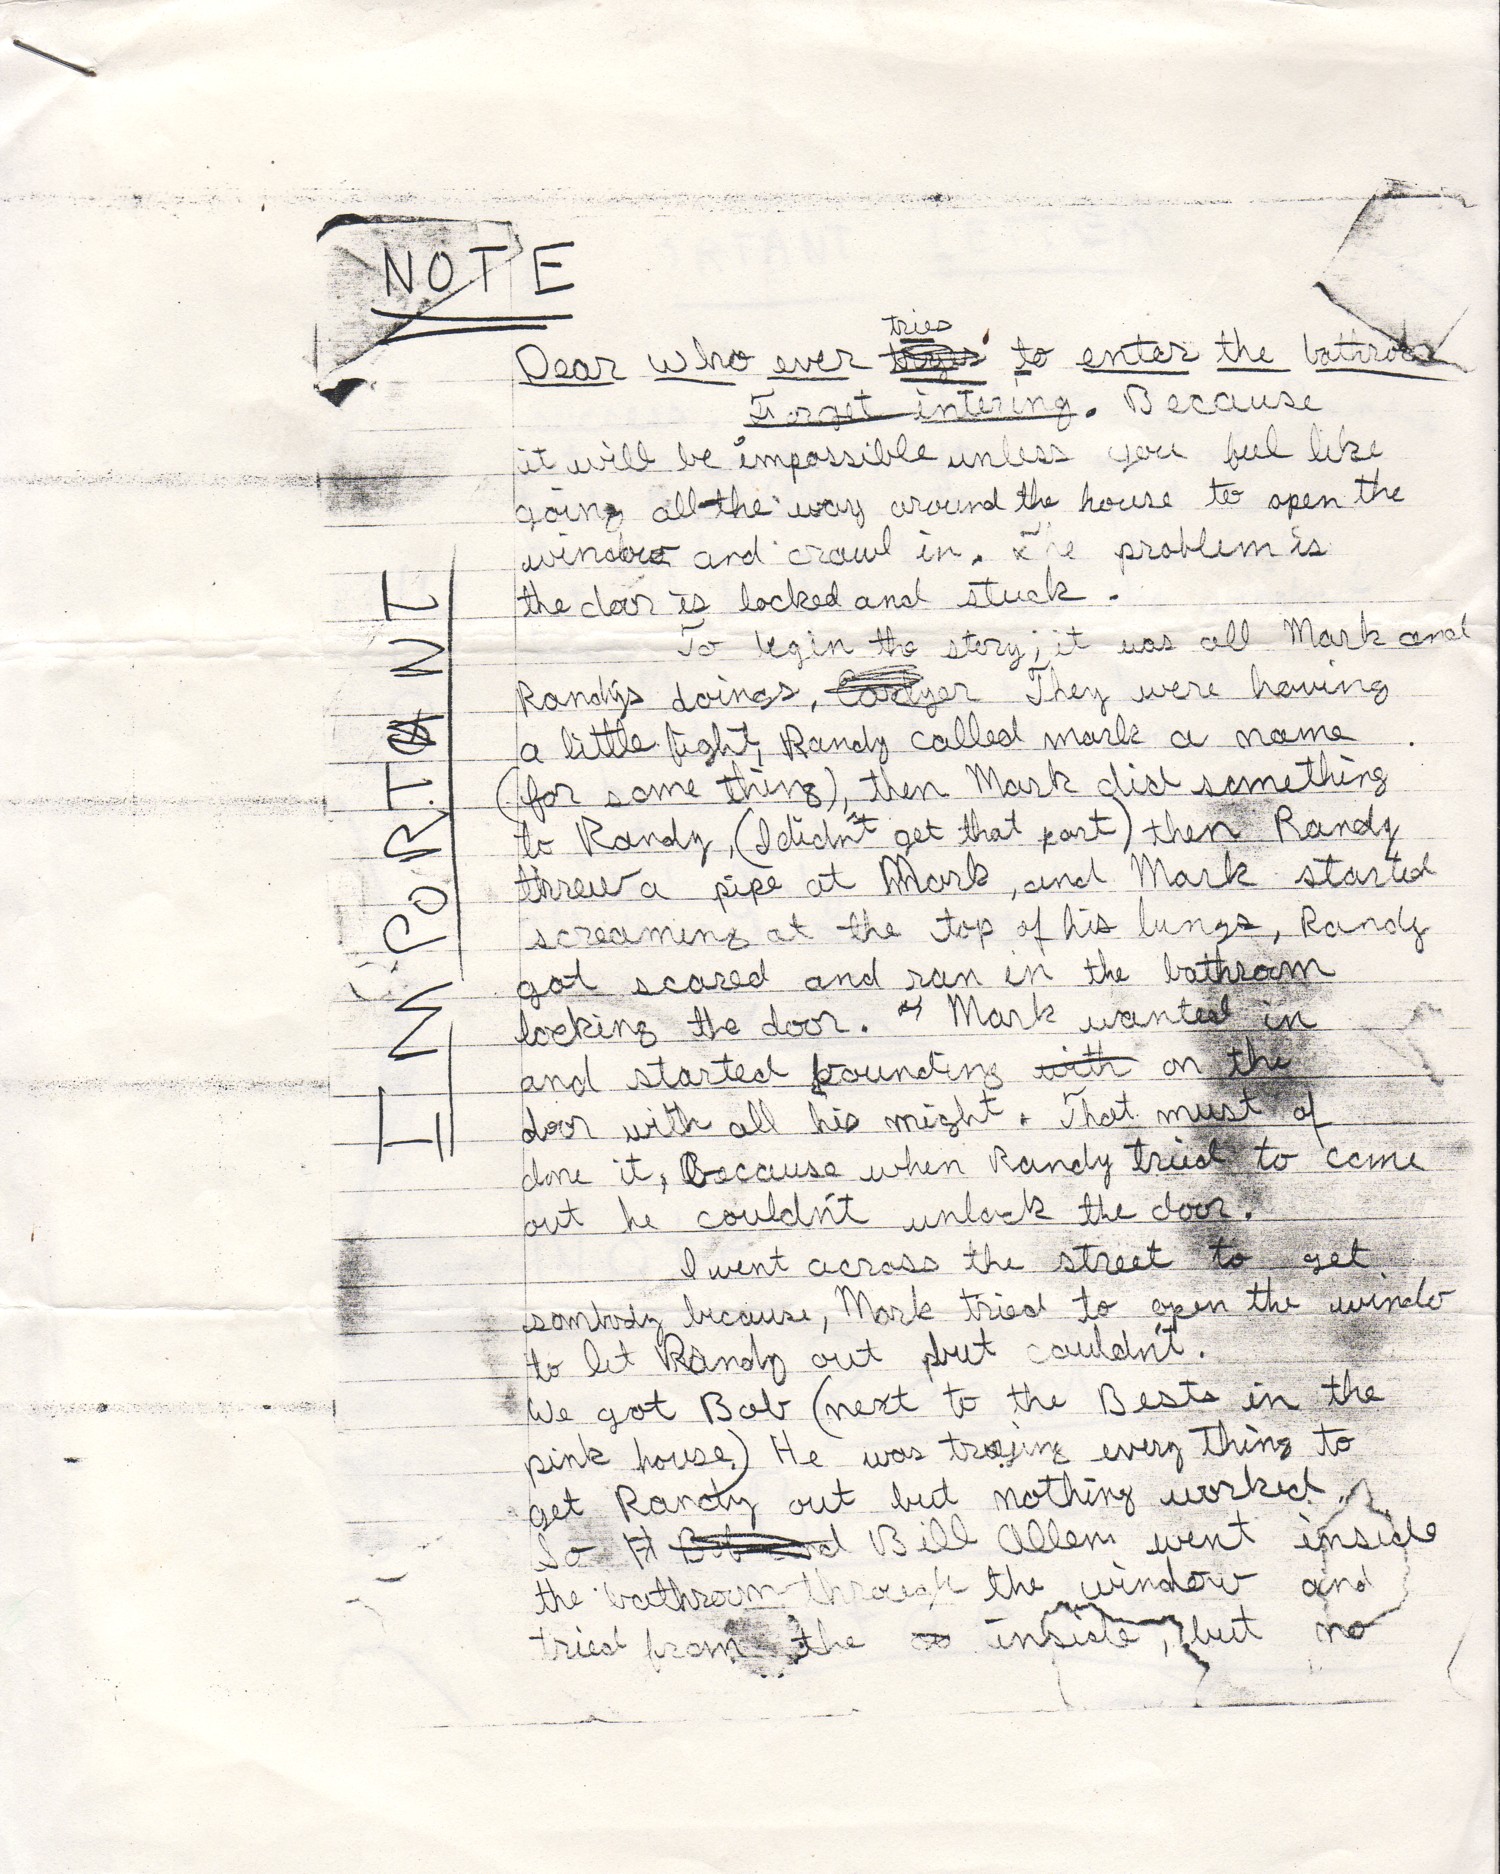 NOTE
IMPORTANT
Dear who ever tries to enter the bathroom
Forget intering. Because
it will be impossible unless you feel like
going all the way around the house to open the
window and crawl in. The problem is
the door is locked and stuck.
To begin the story; it was all Mark and
Randy's doings, They were having
a little fight, Randy called mark a name
(for some thing), then Mark did something
to Randy, (I didn't get that part) then Randy
threw a pipe at Mark, and Mark started
screaming at the top of his lungs, Randy
got scared and ran in the bathroom
locking the door. Mark wanted in
and started pounding with on the
door with all his might. That must of
done it, Because when Randy tried to come
out he couldn't unlock the door.
I went across the street to get
sombody because, Mark tried to open the windo
to let Randy out but couldn't.
We got Bob (next to the Bests in the
pink house.) He was trying every thing to
get Randy out but nothing worked.
So Bob and Bill Allem went inside
the bathroom through the window and
tried from the inside, but no